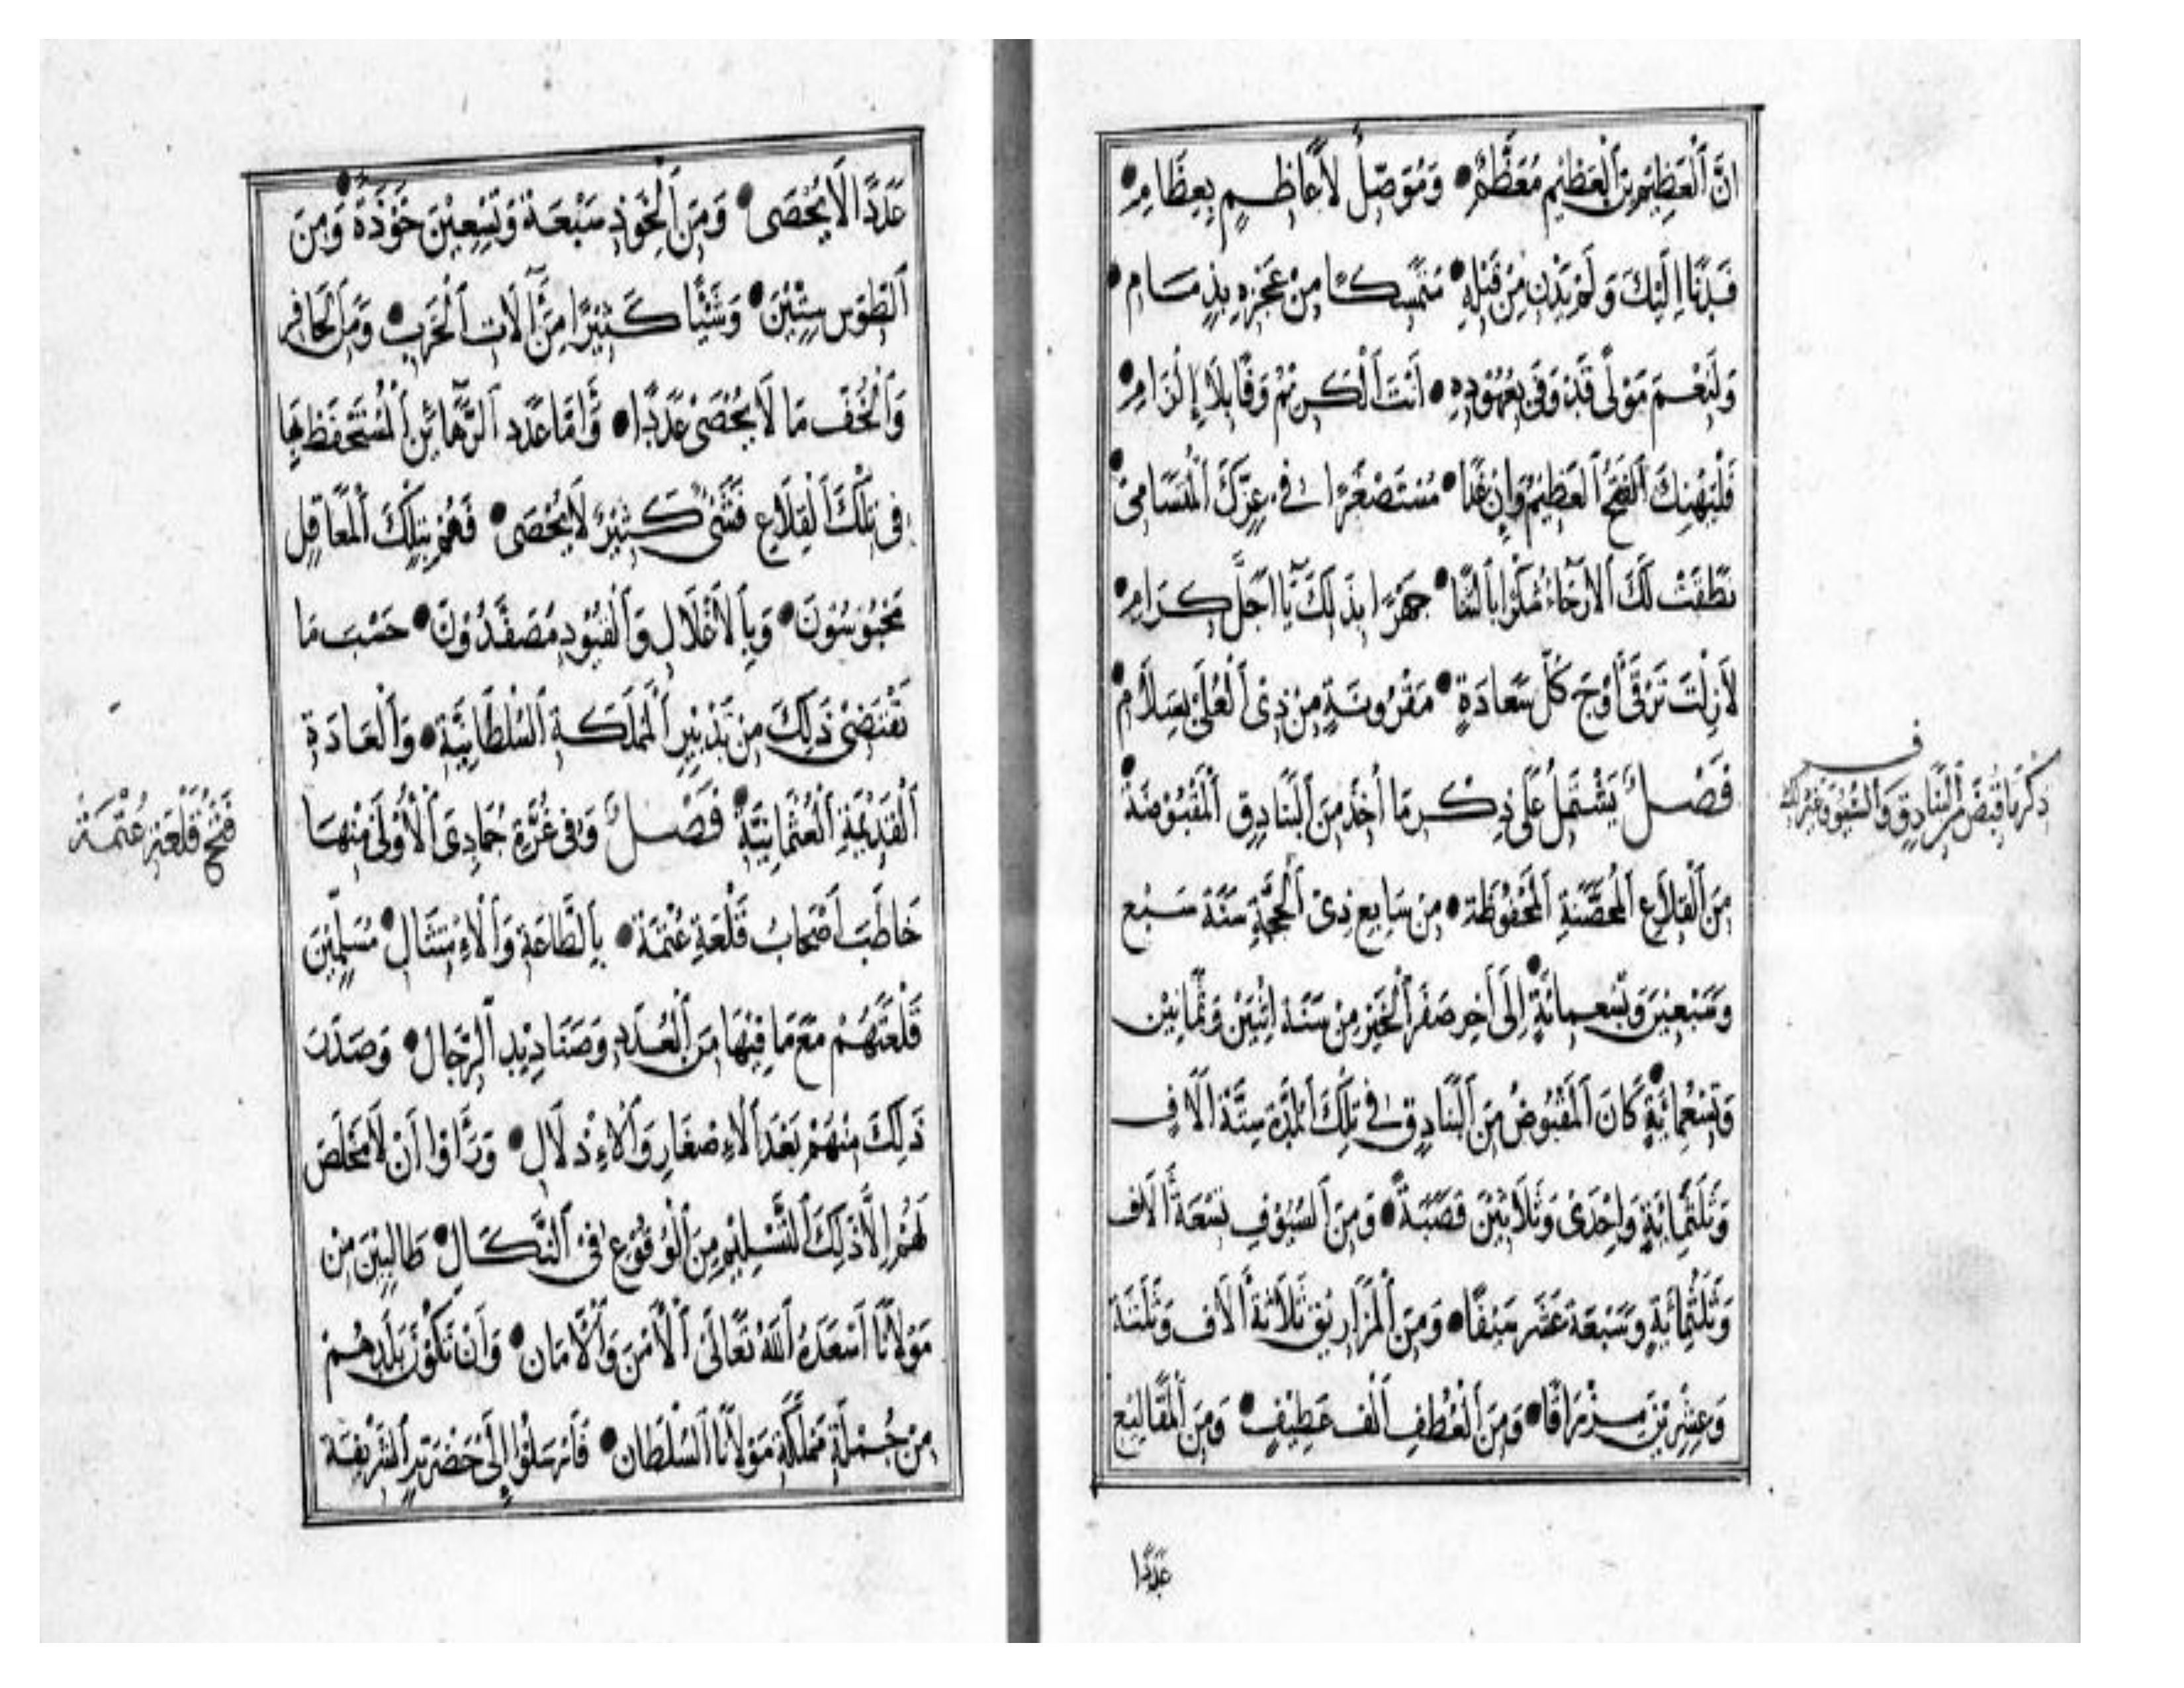 انَّ ٱلْعَظِيمَ مِنَ ٱلْعَظِيمِ مُعَظَّمٌ • وَمُوَصِّلٌ لِأَعَاظِمٍ بِعِظَامِ •
وَلَمْ يَدْنُ مِنْ قَبْلِهِ • مُتَمَسِّكًا مِنْ عَجْزِهِ بِذِمَامِ •
وَلَنِعْمَ مَوْلًى قَدْ وَفَى بِعُهُودِهِ • أَنْتَ ٱلْكَرِيْمُ وَقَابِلَا إِلْزَامِ •
فَلْيَهْنِكَ ٱلْفَتْحُ ٱلْعَظِيْمُ وَإِنْ غَدَا • مُسْتَصْغَرًا فِي عِزِّكَ ٱلْمُتَسَامِيْ •
نَطَقَتْ لَكَ ٱلْأَرْجَاءُ شُكْرًا بِالثَّنَا • جَهْرًا بِذَلِكَ يَا أَجَلَّ كِرَامِ •
لَازِلْتَ تَرْقَى أَوْجَ كُلِّ سَعَادَةٍ • مَقْرُونَةٍ مِنْ ذِي ٱلْعُلَى بِسَلَامِ •
فَصْلٌ يَشْتَمِلُ عَلَى ذِكْرِ مَا أُخِذَ مِنَ ٱلْبَنَادِقِ ٱلْمَقْبُوضَةِ •
ذِكْرُ مَا قُبِضَ مِنَ ٱلْبَنَادِقِ وَٱلسُّيُوفِ وَغَيْرِ ذَلِكَ
مِنَ ٱلْقِلَاعِ ٱلْمُحَصَّنَةِ ٱلْمَحْفُوظَةِ • مِنْ سَابِعِ ذِى ٱلْحِجَّةِ سَنَةَ سَبْعٍ
وَسَبْعِيْنَ وَتِسْعِمِائَةٍ • إِلَى آخِرِ صَفَرِ ٱلْخَيْرِ مِنْ سَنَةِ اِثْنَيْنِ وَثَمَانِيْنَ
وَتِسْعِمِائَةٍ • كَانَ ٱلْمَقْبُوضُ مِنَ ٱلْبَنَادِقِ فِي تِلْكَ ٱلْمُدَّةِ سِتَّةَ آلَافٍ
وَثَلَثَمِائَةٍ وَإِحْدَى وَثَلَاثِيْنَ قَصَبَةً • وَمِنَ ٱلسُّيُوفِ تِسْعَةَ آلَافٍ
وَثَلَثَمِائَةٍ وَسَبْعَةَ عَشَرَ سَيْفًا • وَمِنَ ٱلْمَزَارِيْقِ ثَلَاثَةَ آلَافٍ وَثَلَثَةَ
وَعِشْرِيْنَ مِزْرَاقًا • وَمِنَ ٱلْعُطُفِ أَلْفَ عَطِيْفٍ • وَمِنَ ٱلْمَقَالِيْعِ
عَدَدًا
عَدَدًا لَا يُحْصَى • وَمِنَ ٱلْخُوَذِ سَبْعَةً وَتِسْعِيْنَ خَوْذَةً • وَمِنَ
ٱلطُّوَسِ سِتِّيْنَ • وَشَيْئًا كَثِيْرًا مِنْ آلَاتِ ٱلْحَرْبِ • وَمِنَ ٱلْحَافِرِ
وَٱلْخُفِّ مَا لَا يُحْصَى عَدَدًا • وَأَمَّا عَدَدُ ٱلرَّهَائِنِ ٱلْمُسْتَحْفَظِ بِهَا
فِى تِلْكَ ٱلْقِلَاعِ فَشَىْءٌ كَثِيْرٌ لَا يُحْصَى • فَهُمْ بِتِلْكَ ٱلْمَعَاقِلِ
مَحْبُوسُونَ • وَبِٱلْأَغْلَالِ وَٱلْقُيُودِ مُصَفَّدُوْنَ • حَسْبَ مَا
تَقْتَضِىْ ذَلِكَ مِنْ تَدْبِيْرِ ٱلْمَمْلَكَةِ ٱلسُّلْطَانِيَّةِ • وَٱلْعَادَةِ
ٱلْقَدِيْمَةِ ٱلْعُثْمَانِيَّةِ • فَصْلٌ وَفِى غُرَّةِ جُمَادَى ٱلْأُولَى مِنْهَا
فَتْحُ قَلْعَةِ عُتْمَةَ
خَاطَبَ أَصْحَابُ قَلْعَةِ عُتْمَةَ • بِٱلطَّاعَةِ وَٱلْاِمْتِثَالِ • مُسَلِّمِيْنَ
قَلْعَتَهُمْ مَعَ مَا فِيْهَا مِنَ ٱلْعُدَدِ وَصَنَادِيْدِ ٱلرِّجَالِ • وَصَدَرَ
ذَلِكَ مِنْهُمْ بَعْدَ ٱلْإِصْغَارِ وَٱلْإِذْلَالِ • وَرَأَوْا أَنْ لَا مَخْلَصَ
لَهُمْ إِلَّا ذَلِكَ ٱلتَّسْلِيْمُ مِنَ ٱلْوُقُوْعِ فِى ٱلنَّكَالِ • طَالِبِيْنَ مِنْ
مَوْلَانَا أَسْعَدَهُ ٱللّٰهُ تَعَالَى ٱلْأَمْنَ وَٱلْأَمَانَ • وَأَنْ تَكُوْنَ بَلَدُهُمْ
مِنْ جُمْلَةِ مَمْلَكَةِ مَوْلَانَا ٱلسُّلْطَانِ • فَأَرْسَلُوْا إِلَى حَضْرَتِهِ ٱلشَّرِيْفَةِ